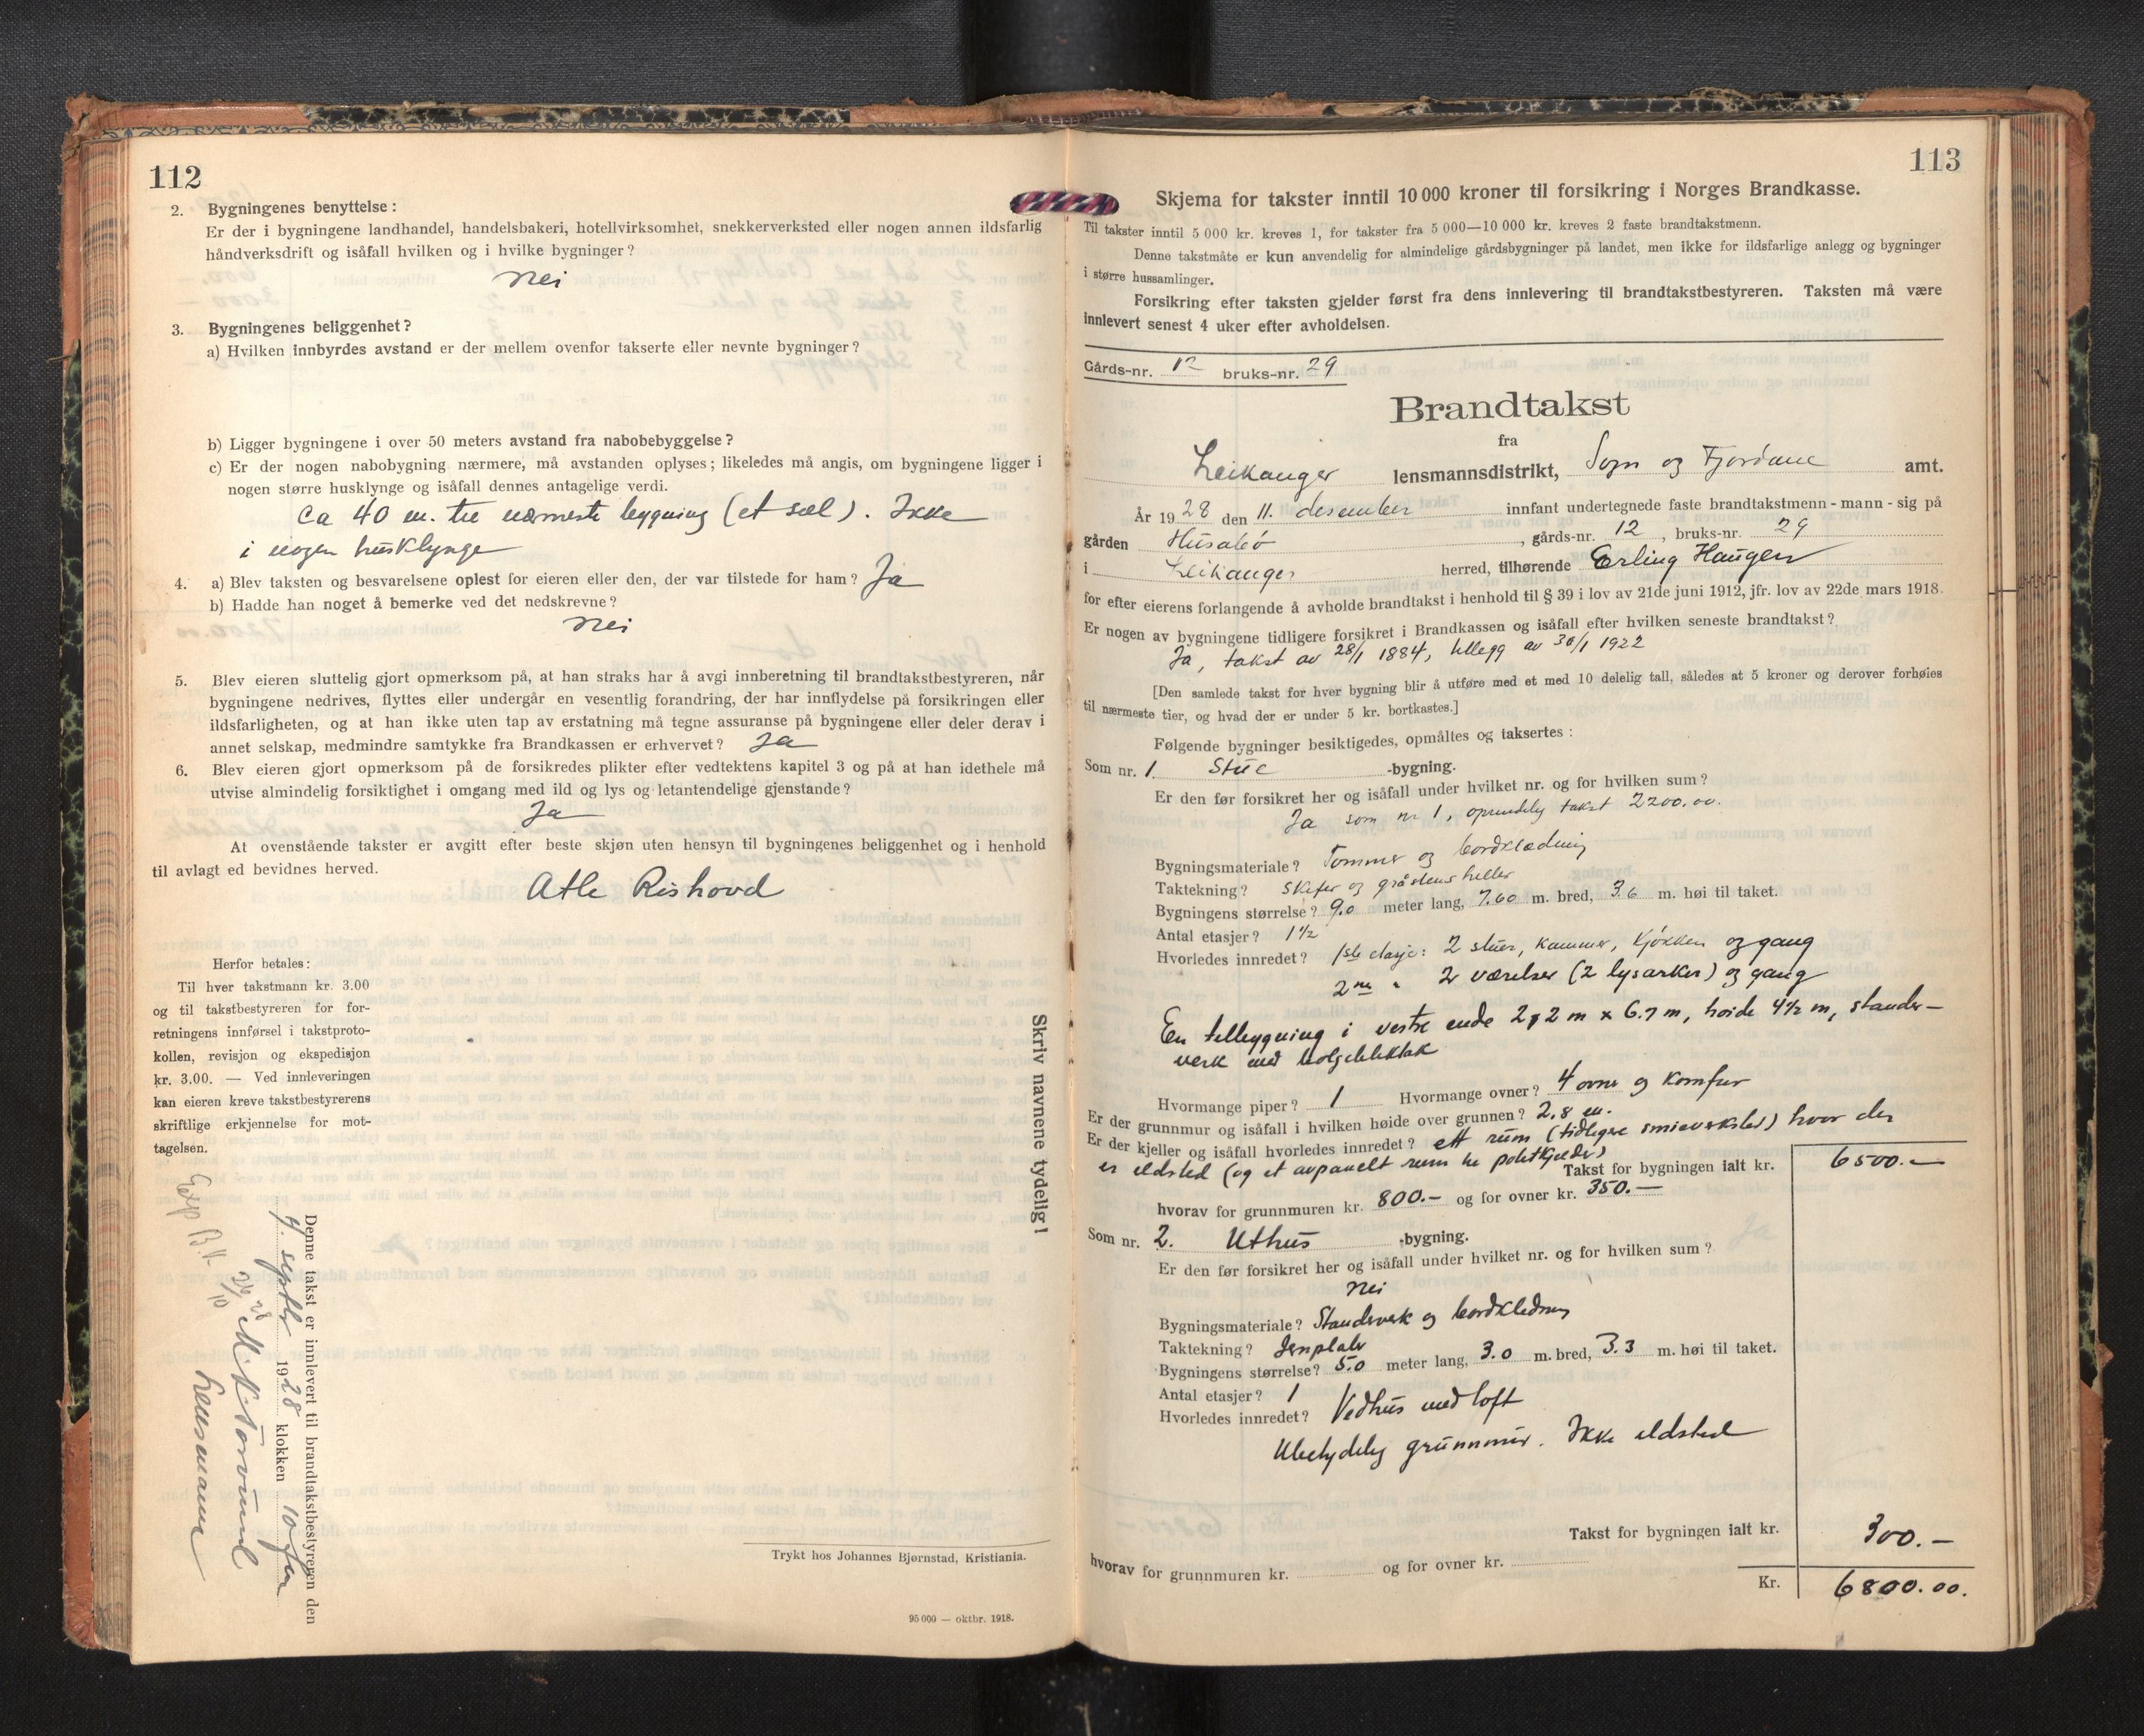 112
2. Bygningenes benyttelse:
Er der i bygningene landhandel, handelsbakeri, hotellvirksomhet, snekkerverksted eller nogen annen ildsfarlig
håndverksdrift og isåfall hvilken og i hvilke bygninger?
Nei
3. Bygningenes beliggenhet?
a) Hvilken innbyrdes avstand er der mellem ovenfor takserte eller nevnte bygninger?
b) Ligger bygningene i over 50 meters avstand fra nabobebyggelse?
c) Er der nogen nabobygning nærmere, må avstanden oplyses; likeledes må angis, om bygningene ligger i
nogen større husklynge og isåfall dennes antagelige verdi.
Ca 40 m. til nærmeste bygning (et sel). Ikke
i nogen husklynge
4. a) Blev taksten og besvarelsene oplest for eieren eller den, der var tilstede for ham? Ja
b) Hadde han noget å bemerke ved det nedskrevne?
Nei
5. Blev eieren sluttelig gjort opmerksom på, at han straks har å avgi innberetning til brandtakstbestyreren, når
bygningene nedrives, flyttes eller undergår en vesentlig forandring, der har innflydelse på forsikringen eller
ildsfarligheten, og at han ikke uten tap av erstatning må tegne assuranse på bygningene eller deler derav i
annet selskap, medmindre samtykke fra Brandkassen er erhvervet? Ja
6. Blev eieren gjort opmerksom på de forsikredes plikter efter vedtektens kapitel 3 og på at han idethele må
utvise almindelig forsiktighet i omgang med ild og lys og letantendelige gjenstande?
Ja
At ovenstående takster er avgitt efter beste skjøn uten hensyn til bygningenes beliggenhet og i henhold
til avlagt ed bevidnes herved.
Atle Rishovd
Herfor betales:
Til hver takstmann kr. 3.00
og til takstbestyreren for for-
retningens innførsel i takstproto-
kollen, revisjon og ekspedisjon
kr. 3.00. — Ved innleveringen
kan eieren kreve takstbestyrerens
skriftlige erkjennelse for mot-
tagelsen.
Skriv navnene tydelig!
Denne takst er innlevert til brandtakstbestyreren den
4. septbr 1928 klokken 10 fm
Lensmann
Trykt hos Johannes Bjørnstad, Kristiania.
95 000 — oktbr. 1918.
113
Skjema for takster inntil 10 000 kroner til forsikring i Norges Brandkasse.
Til takster inntil 5 000 kr. kreves 1, for takster fra 5 000—10 000 kr. kreves 2 faste brandtakstmenn.
Denne takstmåte er kun anvendelig for almindelige gårdsbygninger på landet, men ikke for ildsfarlige anlegg og bygninger
i større hussamlinger.
Forsikring efter taksten gjelder først fra dens innlevering til brandtakstbestyreren. Taksten må være
innlevert senest 4 uker efter avholdelsen.
Gårds-nr. 12 bruks-nr. 29
Brandtakst
fra
Leikanger lensmannsdistrikt, Sogn og Fjordane amt.
År 1928 den 11. desember innfant undertegnede faste brandtakstmenn - mann - sig på
gården Husabø, gårds-nr. 12, bruks-nr. 29
i Leikanger herred, tilhørende Erling Haugen
for efter eierens forlangende å avholde brandtakst i henhold til § 39 i lov av 21de juni 1912, jfr. lov av 22de mars 1918.
Er nogen av bygningene tidligere forsikret i Brandkassen og isåfall efter hvilken seneste brandtakst?
Ja, takst av 28/1 1884, tillegg av 30/1 1922
[Den samlede takst for hver bygning blir å utføre med et med 10 delelig tall, således at 5 kroner og derover forhøies
til nærmeste tier, og hvad der er under 5 kr. bortkastes.]
Følgende bygninger besiktigedes, opmåltes og taksertes:
Som nr. 1 Stue -bygning.
Er den før forsikret her og isåfall under hvilket nr. og for hvilken sum?
Ja som nr 1, oprindelig takst 2200.00.
Bygningsmateriale? Tømmer og bordklædning
Taktekning? Skifer og gråstens heller
Bygningens størrelse? 9.0 meter lang, 7.60 m. bred, 3.6 m. høi til taket.
Antal etasjer? 1 1/2
Hvorledes innredet? 1ste etasje: 2 stuer, kammer, kjøkken og gang
2nen " 2 værelser (2 lysarker) og gang
En tilbygning i vestre ende 2,2 m x 6.7 m, høide 4 1/2 m, stander-
verk med bolgebliktak
Hvormange piper? 1 Hvormange ovner? 4 ovner og komfur
Er der grunnmur og isåfall i hvilken høide over grunnen? 2,8 m.
Er der kjeller og isåfall hvorledes innredet? ett rum (tidligere smieverksted) hvor der
er ildsted (og et avpanelt rum til potetkjeller)
Takst for bygningen ialt kr. 6500.—
hvorav for grunnmuren kr. 800.— og for ovner kr. 350.—
Som nr. 2. Uthus -bygning.
Er den før forsikret her og isåfall under hvilket nr. og for hvilken sum?
Nei
Bygningsmateriale? Standerverk og bordkledning
Taktekning? Jernplater
Bygningens størrelse? 5.0 meter lang, 3.0 m. bred, 3.3 m. høi til taket.
Antal etasjer? 1
Hvorledes innredet? Vedhus med loft
Ubetydelig grunnmur. Ikke ildsted
Takst for bygningen ialt kr. 300.—
hvorav for grunnmuren kr. og for ovner kr.
Kr. 6800.00.